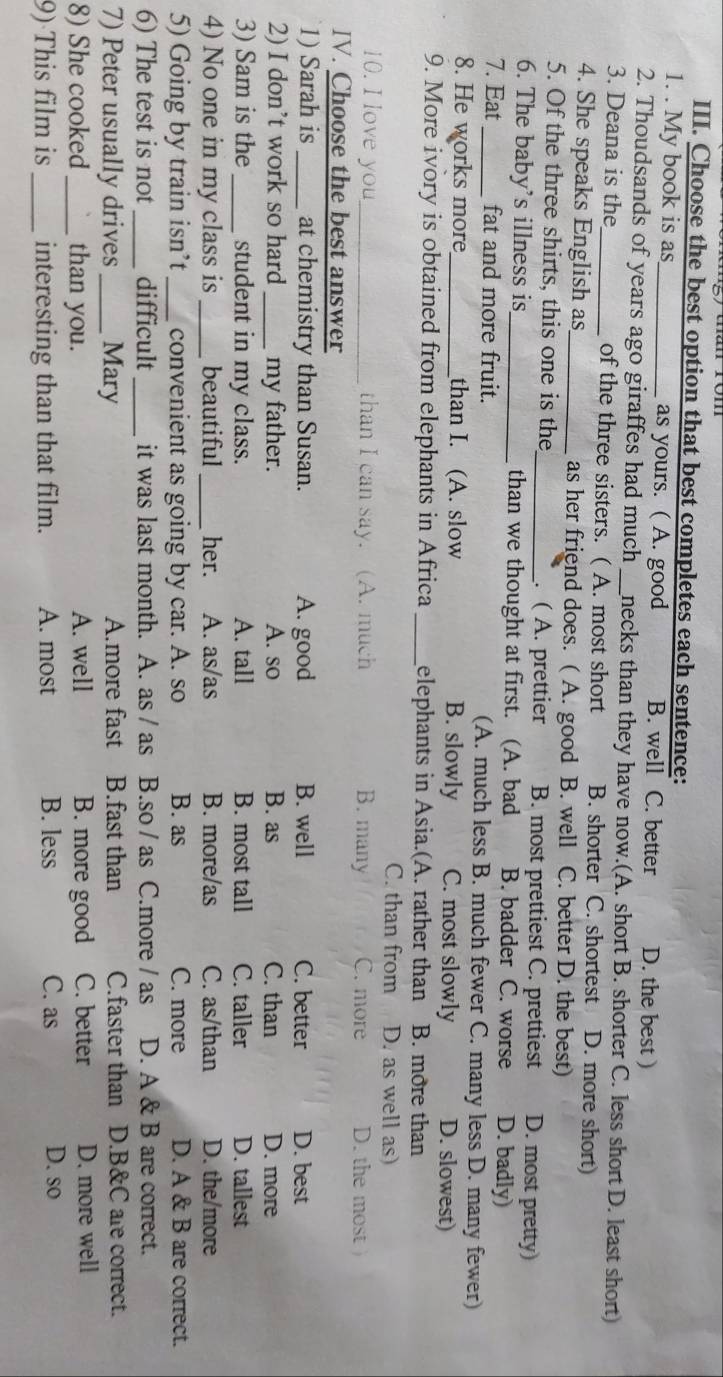 than Tom
III. Choose the best option that best completes each sentence:
1. . My book is as __________ as yours. ( A. good B. well C. better D. the best )
2. Thoudsands of years ago giraffes had much __necks than they have now.(A. short B. shorter C. less short D. least short)
3. Deana is the________ of the three sisters. ( A. most short B. shorter C. shortest D. more short)
4. She speaks English as_________ as her friend does. ( A. good B. well C. better D. the best)
5. Of the three shirts, this one is the_________. ( A. prettier B. most prettiest C. prettiest D. most pretty)
6. The baby's illness is __________ than we thought at first. (A. bad B. badder C. worse D. badly)
7. Eat _____ fat and more fruit. (A. much less B. much fewer C. many less D. many fewer)
8. He works more_________than I. (A. slow B. slowly C. most slowly D. slowest)
9. More ivory is obtained from elephants in Africa ____elephants in Asia.(A. rather than B. more than
C. than from D. as well as)
10. I love you______________ than I can say. (A. much B. many C. more D. the most )
IV. Choose the best answer
1) Sarah is _____ at chemistry than Susan. A. good B. well C. better D. best
2) I don't work so hard _____ my father. A. so B. as C. than D. more
3) Sam is the _____ student in my class. A. tall B. most tall C. taller D. tallest
4) No one in my class is _____ beautiful _____ her. A. as/as B. more/as C. as/than D. the/more
5) Going by train isn't ____ convenient as going by car. A. so B. as C. more D. A & B are correct.
6) The test is not _____ difficult _____ it was last month. A. as / as B.so / as C.more / as D. A & B are correct.
7) Peter usually drives _____ Mary A.more fast B.fast than C.faster than D.B&C are correct.
8) She cooked _____ than you. A. well B. more good C. better D. more well
9) This film is _____ interesting than that film. A. most B. less C. as D. so